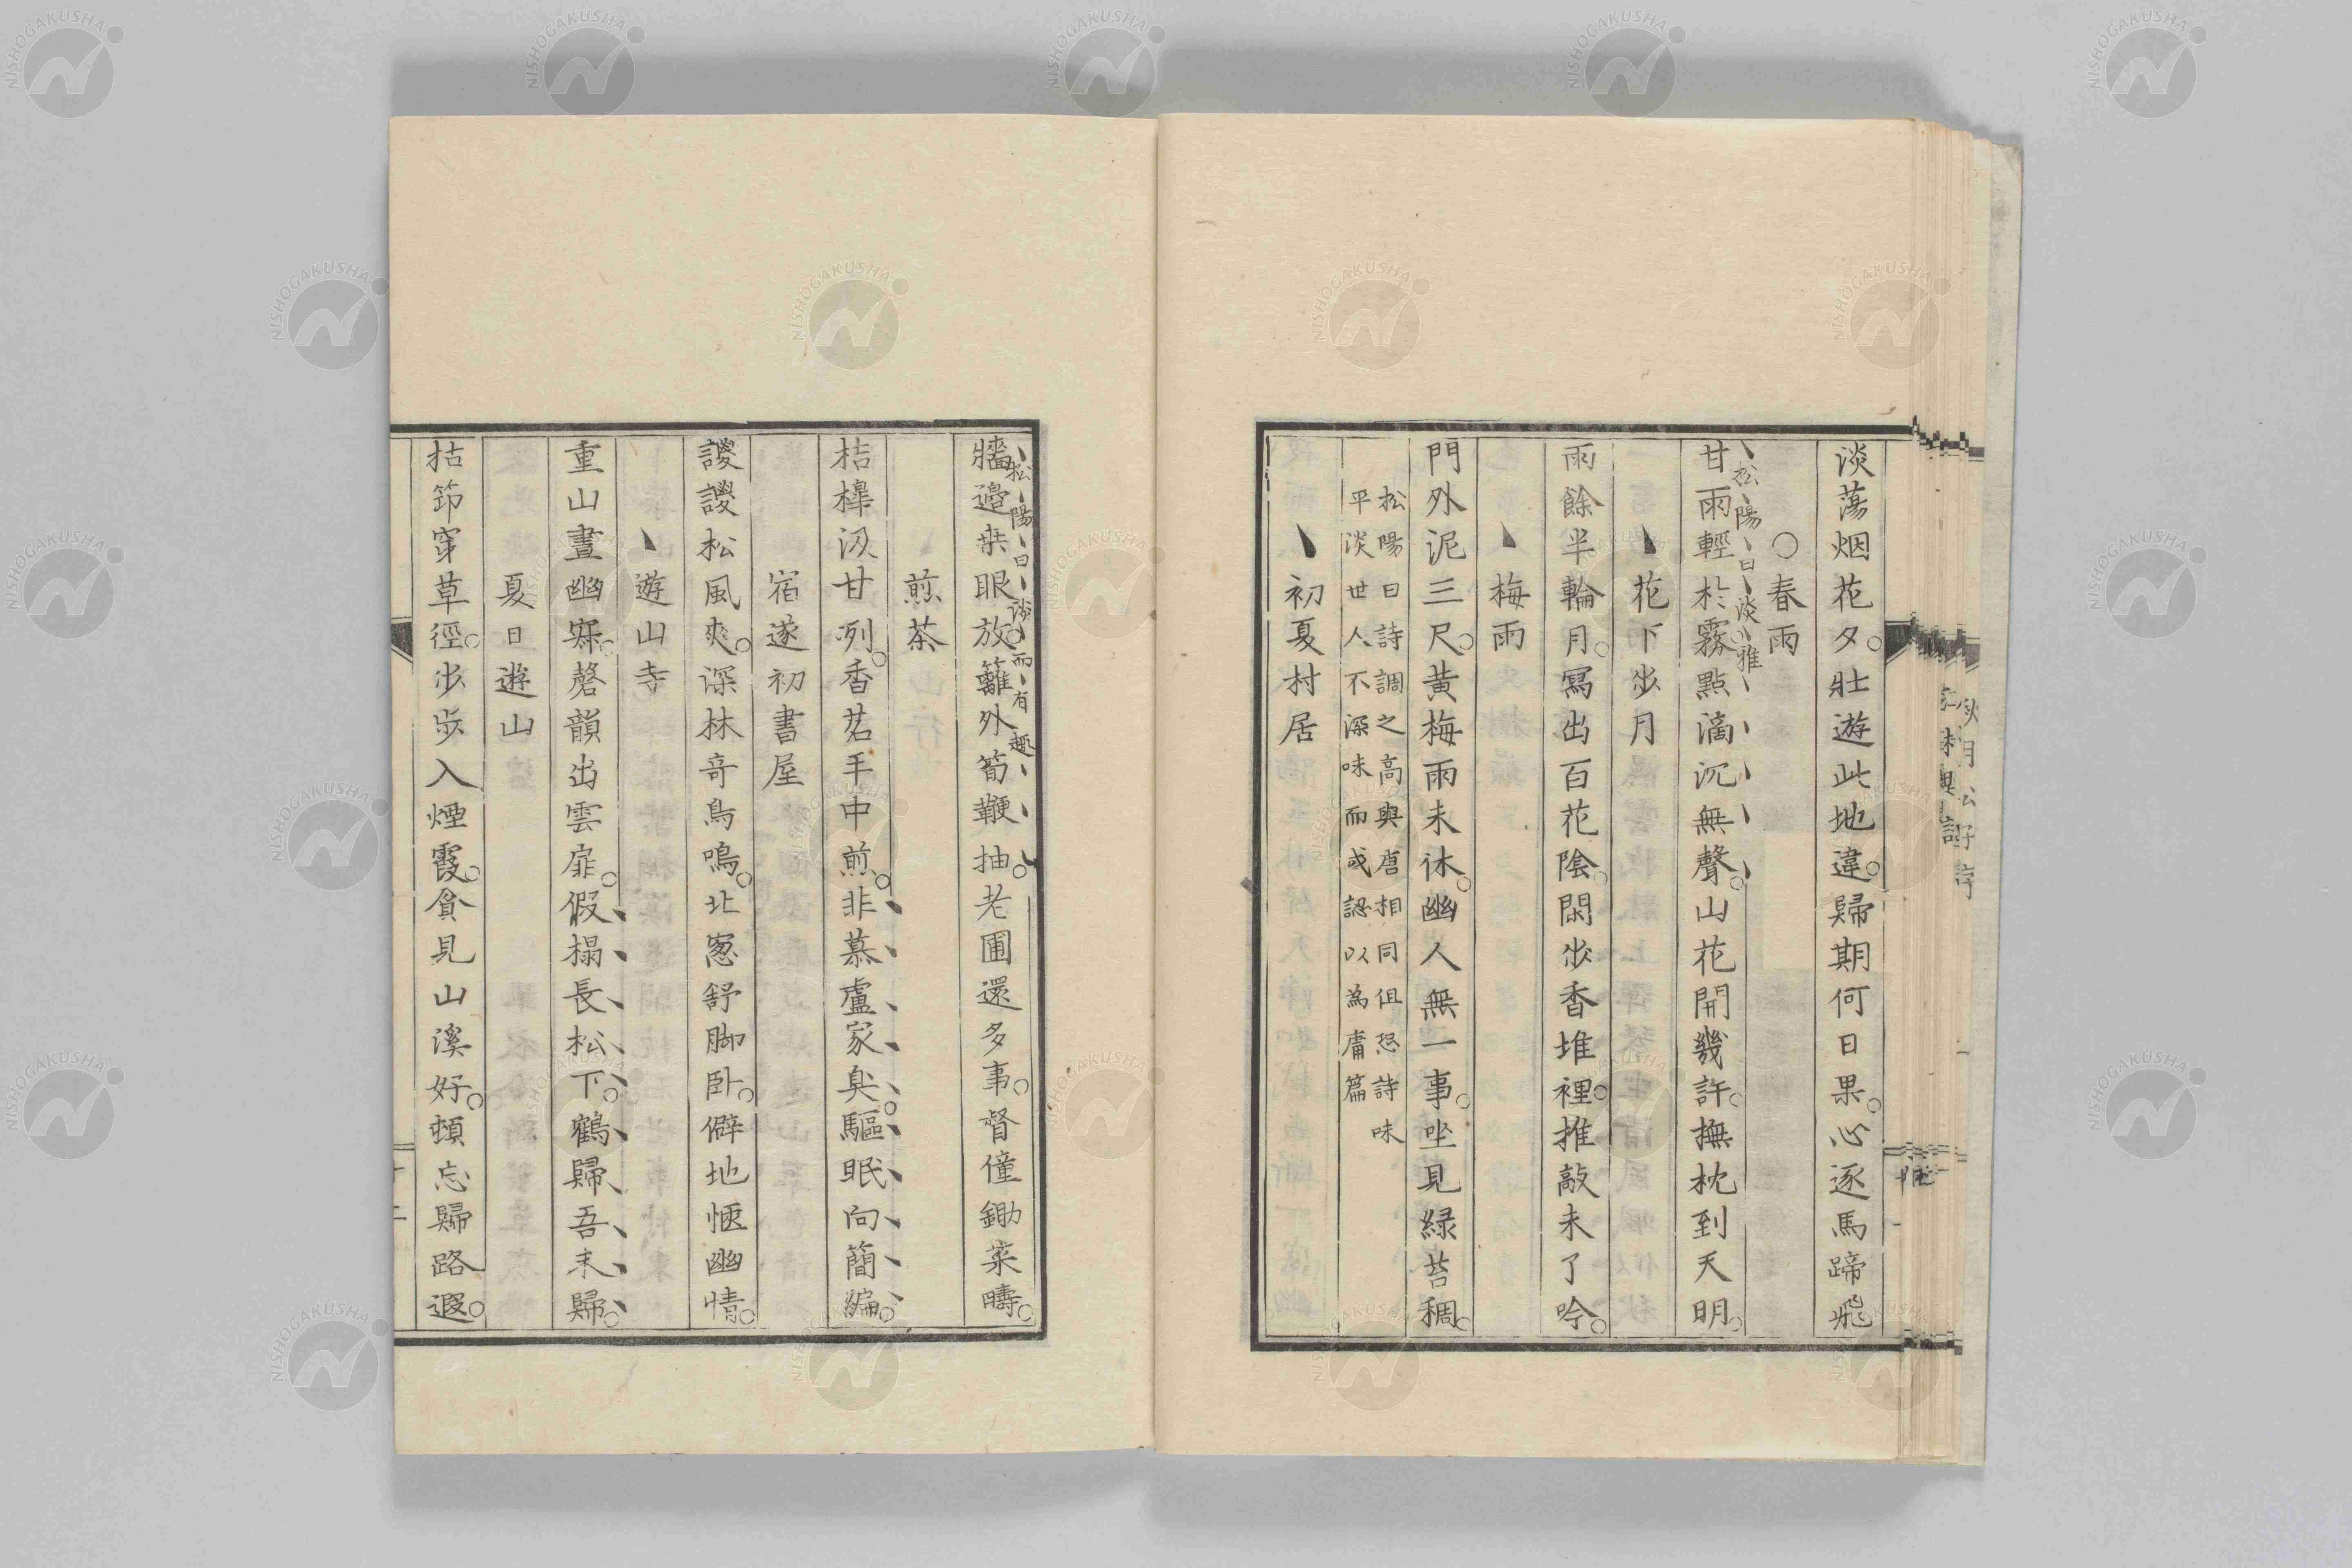 淡蕩烟花夕。壮遊此地違。歸期何日果。心逐馬蹄飛
○春雨
松陽曰淡雅
甘雨輕於霧點滴沉無聲。山花開幾許。撫枕到天明。
花下步月
雨餘半輪月。寫出百花陰。閑步香堆裡。推敲未了吟。
梅雨
門外泥三尺。黄梅雨未休。幽人無一事。坐見緑苔稠。
松陽曰詩調之高與唐相同但恐詩味
平淡世人不深味而或認以為庸篇
初夏村居
松陽曰淡而有趣
牆邉眼放。籬外筍鞭抽。老圃還多事。督僮鋤菜疇。
煎茶
桔槹汲甘冽。香茗手中煎。非慕盧家臭。驅眠向簡編。
宿遂初書屋
謖謖松風爽。深林竒鳥鳴。北窓舒脚卧。僻地愜幽情。
遊山寺
重山晝幽寂。磬韻出雲扉。假榻長松下。鶴歸吾未歸。
夏日遊山
枯笻穿草徑。步步入煙霞。貪見山溪好。頓忘歸路遐。
NISHOGAKUSHA